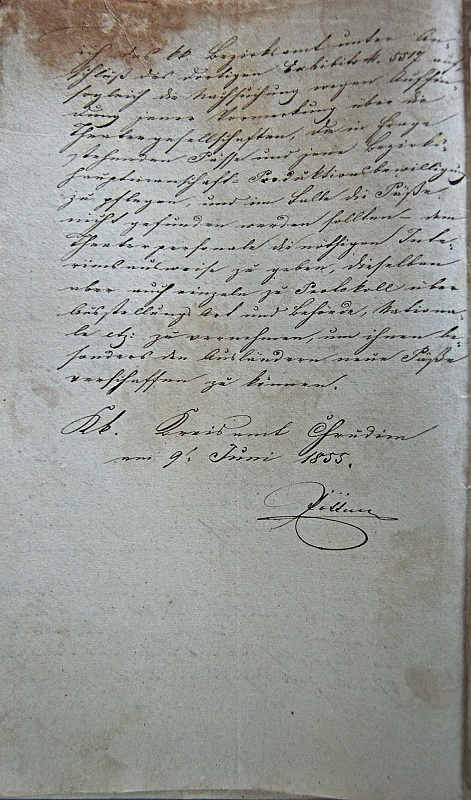 ich das kk Bezirksamt unter An-
schluß des dortigen Exhibits N. 5517 auf
sogleich die Nachsuchung wegen
dung jener Vormerkung über die
Theatergesellschaften, die in Frage
stehenden Pässe und jene Bezirks-
hauptmannschaft- Produktionsbewilligung
zu pflegen, und im Falle die Päße
nicht gefunden werden sollten- dem
Theaterpersonale die nöthigen Inte-
rimsausweise zu geben, dieselben
aber auch einzeln zu Protokoll über
Ausstellungs Ort und Behörde, Nationa-
le etz: zu vernehmen, um ihnen be-
sonders den Ausländern neue Päße
verschaffen zu können.
Kk. Kreisamt Chrudim
am 9t. Juni 1855.